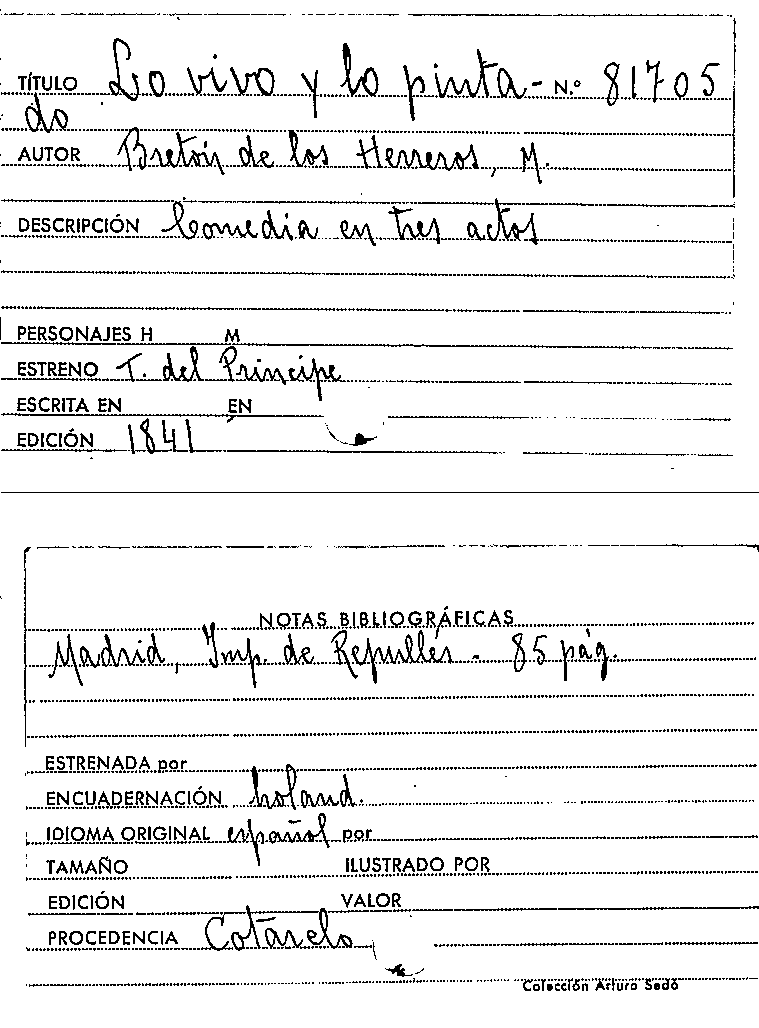 TÍTULO Lo vivo y lo pinta- N.º 81705
do
AUTOR Bretón de los Herreros, M.
DESCRIPCIÓN Comedia en tres actos
PERSONAJES H M
ESTRENO T. del Príncipe
ESCRITA EN EN
EDICIÓN 1841
NOTAS BIBLIOGRÁFICAS
Madrid, Imp. de Repullés - 85 pág.
ESTRENADA por
ENCUADERNACIÓN holand.
IDIOMA ORIGINAL español por
TAMAÑO ILUSTRADO POR
EDICIÓN VALOR
PROCEDENCIA Cotarelo
Colección Arturo Sedó